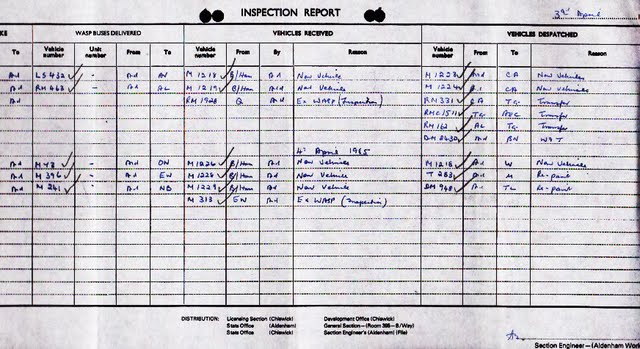 INSPECTION REPORT 3rd April
KE WASP BUSES DELIVERED VEHICLES RECEIVED VEHICLES DESPATCHED
To Vehicle number Unit number From To Vehicle number From By Reason Vehicle number From To Reason
Ad LS 432 - Ad AV M 1218 B/Ham Ad New Vehicle M 1223 Ad CA New Vehicles
Ad RM 463 - Ad AL M 1219 B/Ham Ad New Vehicle M 1224 Ad CA New Vehicles
Ad RM 1928 Q Ad Ex WASP (Inspection) RM 331 CA Tg Transfer
RMC 1511 Tg Transfer
RM 162 AL Tg Transfer
DM 2630 Ad BN
4th April 1985
Ad M 43 - Ad ON M 1226 B/Ham Ad New Vehicle M 1218 Ad W New Vehicles
Ad M 396 - Ad EW M 1228 B/Ham Ad New Vehicle T 283 Ad Re-paint
Ad M 241 - Ad NB M 1229 B/Ham Ad New Vehicle DM 948 Ad TL Re-paint
M 313 EW Ad Ex WASP (Inspection)
DISTRIBUTION: Licensing Section (Chiswick) Development Office (Chiswick)
State Office (Aldenham) General Section—(Room 395—B/Way)
State Office (Chiswick) Section Engineer's (Aldenham) (File)
Section Engineer—(Aldenham Wor